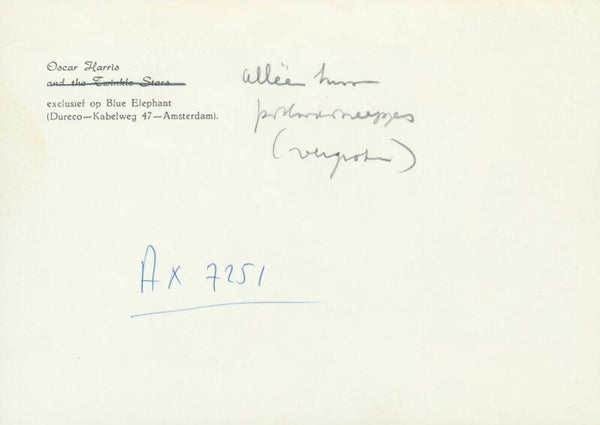 Oscar Harris
and the Twinkle Stars
exclusief op Blue Elephant
(Dureco—Kabelweg 47—Amsterdam).
alléén hun
(vergroten)
AX 7251